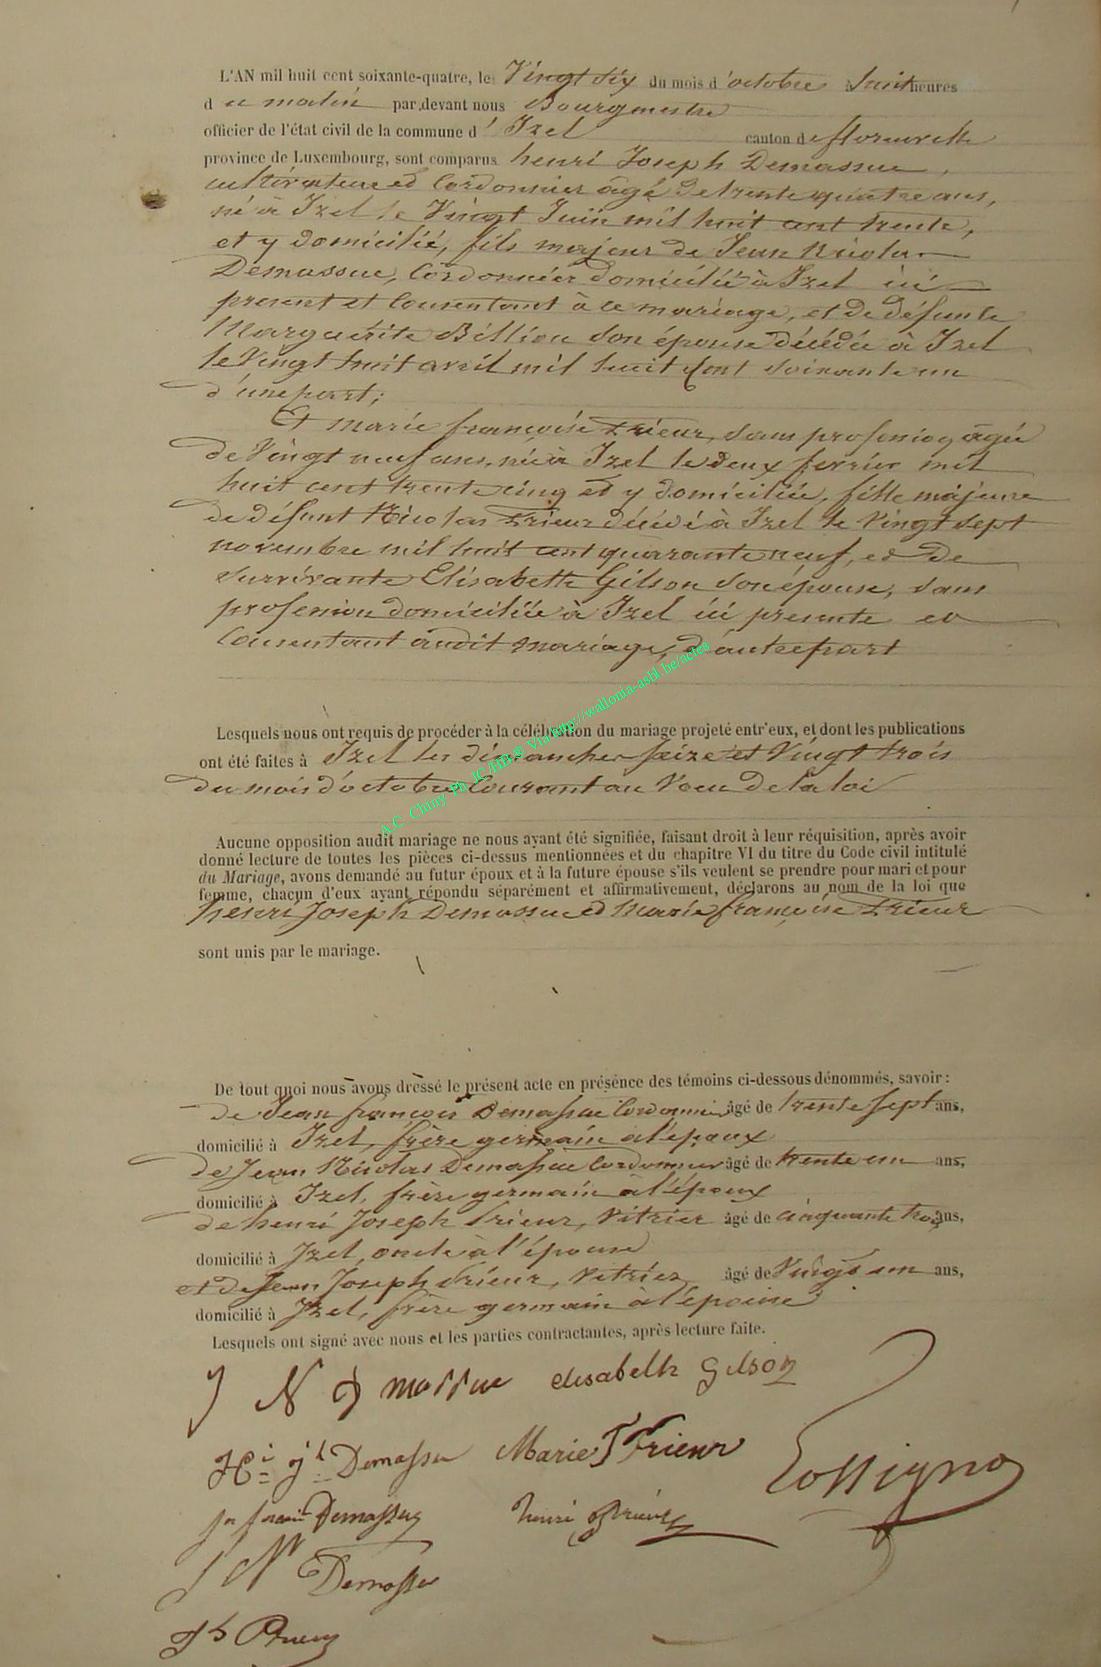 L'AN mil huit cent soixante-quatre, le Vingt six du mois d'octobre à huit heures
du matin par devant nous Bourgmestre
officier de l'état civil de la commune d'Izel canton de florenville
province de Luxembourg, sont comparus henri Joseph Demassue,
cultivateur et Cordonnier âgé de trente quatre ans,
né à Izel le Vingt Juin mil huit cent trente,
et y domicilié, fils majeur de Jean Nicolas
Demassue, Cordonnier domicilié à Izel ici
present et Consentant à ce mariage, et de défunte
Marguerite Billion son épouse décédée à Izel
le Vingt huit avril mil huit Cent soixante un
d'une part;
Et marie françoise Frieur, sans profession, agée
de Vingt neuf ans, née à Izel le deux fevrier mil
huit cent trente cinq et y domiciliée, fille majeure
de défunt Nicolas Frieur décédé à Izel le Vingt sept
novembre mil huit cent quarante neuf, et de
survivante Elisabeth Gilson son épouse, sans
profession domiciliée à Izel ici presente et
Consentant audit mariage, d'autre part
Lesquels nous ont requis de procéder à la célébration du mariage projeté entr'eux, et dont les publications
ont été faites à Izel les dimanches seize et Vingt trois
du mois d'octobre Courant au Voeu de la loi
A.C. Chiny Ph. JC HB © Via http://wallonia-asbl.be/actes
Aucune opposition audit mariage ne nous ayant été signifiée, faisant droit à leur réquisition, après avoir
donné lecture de toutes les pièces ci-dessus mentionnées et du chapitre VI du titre du Code civil intitulé
du Mariage, avons demandé au futur époux et à la future épouse s'ils veulent se prendre pour mari et pour
femme, chacun d'eux ayant répondu séparément et affirmativement, déclarons au nom de la loi que
henri Joseph Demassue et Marie françoise Frieur
sont unis par le mariage.
De tout quoi nous avons dressé le présent acte en présence des témoins ci-dessous dénommés, savoir :
de Jean françois Demassue Cordonnier âgé de trente sept ans,
domicilié à Izel, frère germain à l'époux
de Jean Nicolas Demassue Cordonnier âgé de trente un ans,
domicilié à Izel, frère germain à l'époux
de henri Joseph Frieur, Vitrier âgé de cinquante trois ans,
domicilié à Izel, oncle à l'épouse
et de Jean Joseph Frieur, Vitrier âgé de Vingt un ans,
domicilié à Izel, frère germain à l'épouse
Lesquels ont signé avec nous et les parties contractantes, après lecture faite.
J N D massue elisabeth Gilson
Hi jh Demassue Marie F Frieur Rossignon
jn francois Demassue henri Frieur
J Nas Demassue